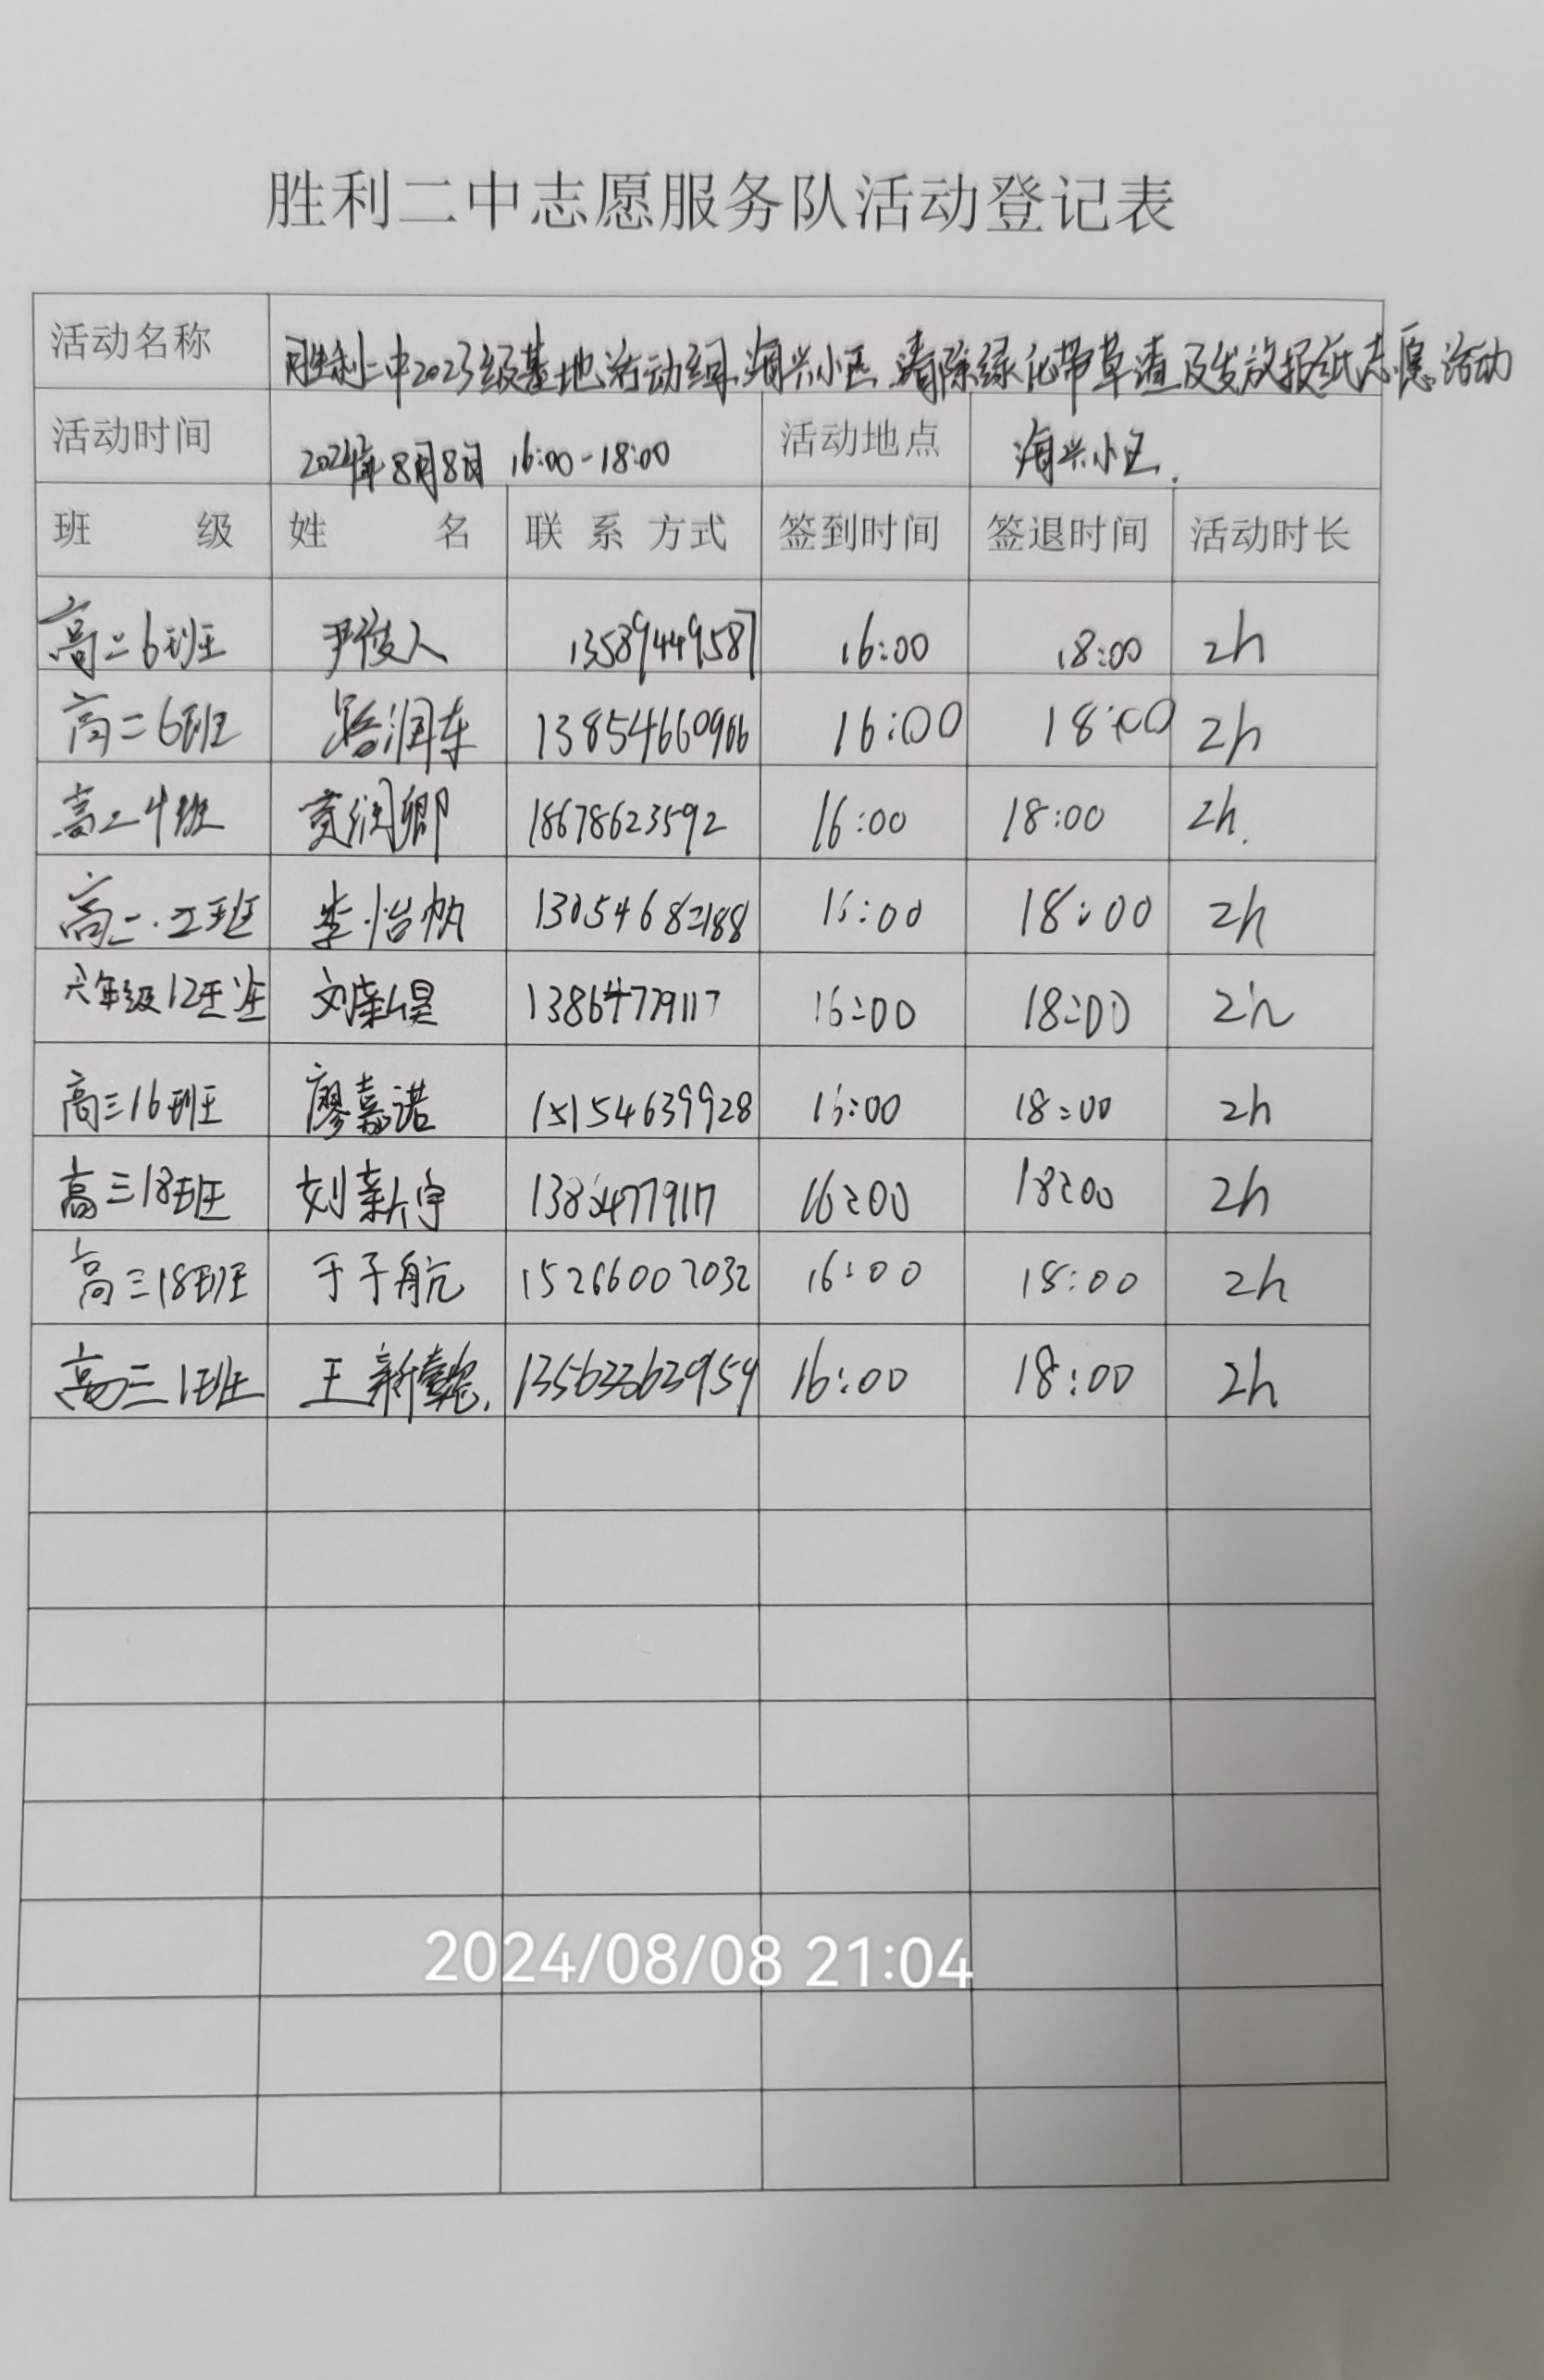 胜利二中志愿服务队活动登记表
活动名称 胜利二中2023级基地活动组海兴小区清除绿化带草渣及发放报纸志愿活动
活动时间 2024年8月8日 16:00-18:00 活动地点 海兴小区.
班 级 姓 名 联系方式 签到时间 签退时间 活动时长
高二6班 尹俊人 13589449587 16:00 18:00 2h
高二6班 路润东 13854660966 16:00 18:00 2h
高二4班 黄润卿 18678623592 16:00 18:00 2h.
高二.工班 李怡帆 13054682188 16:00 18:00 2h
六年级12班 刘 昊 13864779117 16:00 18:00 2h
高三16班 廖嘉诺 15154639928 16:00 18:00 2h
高三18班 刘 宇 13864779117 16:00 18:00 2h
高三18班 于子航 15266007032 16:00 18:00 2h
高三1班 王新懿. 13563363959 16:00 18:00 2h
2024/08/08 21:04